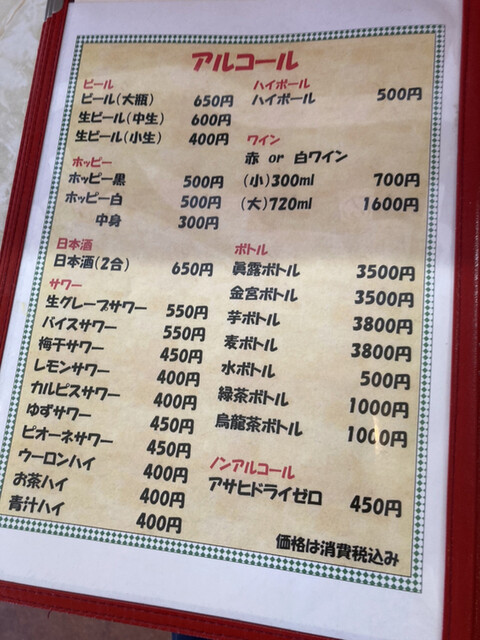 アルコール
ビール
ビール(大瓶) 650円
生ビール(中生) 600円
生ビール(小生) 400円
ホッピー
ホッピー黒 500円
ホッピー白 500円
中身 300円
日本酒
日本酒(2合) 650円
サワー
生グレープサワー 550円
バイスサワー 550円
梅干サワー 450円
レモンサワー 400円
カルピスサワー 400円
ゆずサワー 450円
ピオーネサワー 450円
ウーロンハイ 400円
お茶ハイ 400円
青汁ハイ 400円
ハイボール
ハイボール 500円
ワイン
赤 or 白ワイン
(小)300ml 700円
(大)720ml 1600円
ボトル
眞露ボトル 3500円
金宮ボトル 3500円
芋ボトル 3800円
麦ボトル 3800円
水ボトル 500円
緑茶ボトル 1000円
烏龍茶ボトル 1000円
ノンアルコール
アサヒドライゼロ 450円
価格は消費税込み